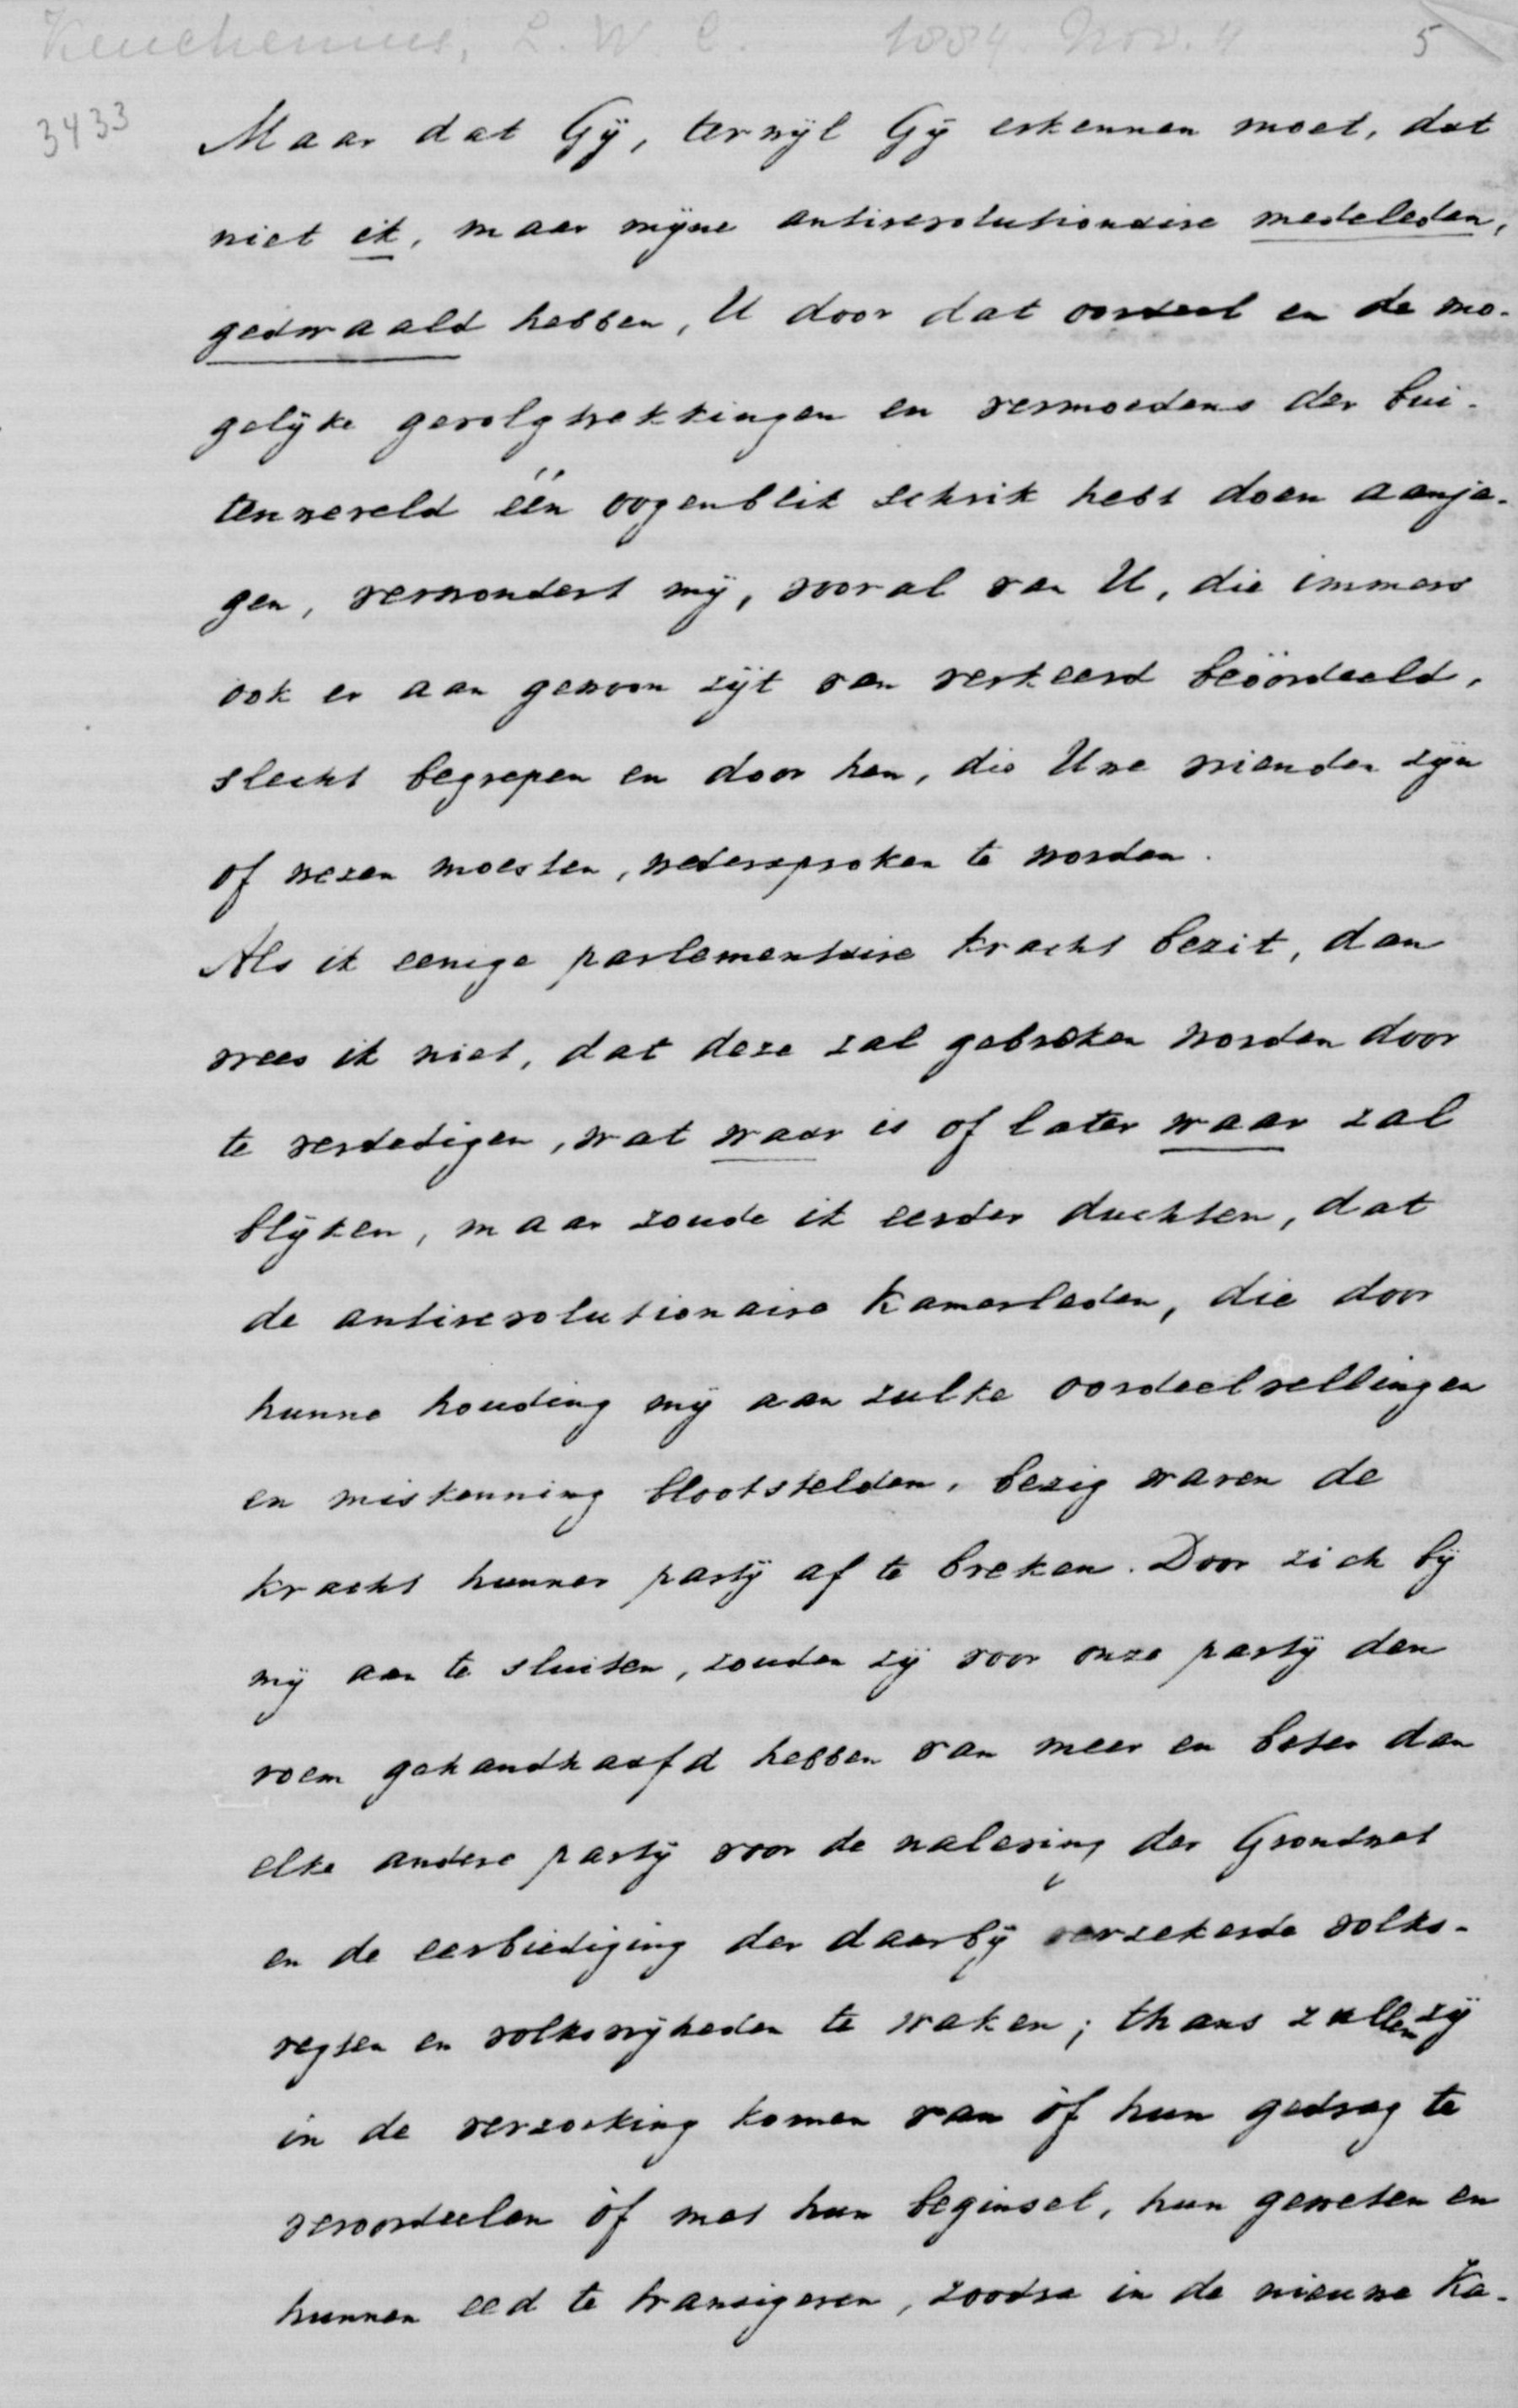 Keuchenius, L. W. C. 1884. Nov. 4 5
3433
Maar dat Gÿ, terwÿl Gÿ erkennen moet, dat
niet ik, maar mÿne antirevolutionaire medeleden,
gedwaald hebben, U door dat oordeel en de mo-
gelÿke gevolgtrekkingen en vermoedens der bui-
tenwereld één oogenblik schrik hebt doen aanja-
gen, verwondert mÿ, vooral van U, die immers
ook er aan gewoon zÿt van verkeerd beöordeeld,
slecht begrepen en door hen, die Uwe vrienden zÿn
of wezen moesten, wedersproken te worden.
Als ik eenige parlementaire kracht bezit, dan
vrees ik niet, dat deze zal gebroken worden door
te verdedigen, wat waar is of later waar zal
blÿken, maar zoude ik eerder duchten, dat
de antirevolutionaire Kamerleden, die door
hunne houding mÿ aan zulke oordeelvellingen
en miskenning blootstelden, bezig waren de
kracht hunner partÿ af te breken. Door zich bÿ
mÿ aan te sluiten, zouden zÿ voor onze partÿ den
roem gehandhaafd hebben van meer en beter dan
elke andere partÿ voor de naleving der Grondwet
en de eerbiediging der daarbÿ verzekerde volks-
regten en volksvrÿheden te waken; thans zullen zÿ
in de verzoeking komen van òf hun gedrag te
veroordeelen òf met hun beginsel, hun geweten en
hunnen eed te transigeren, zoodra in de nieuwe Ka-